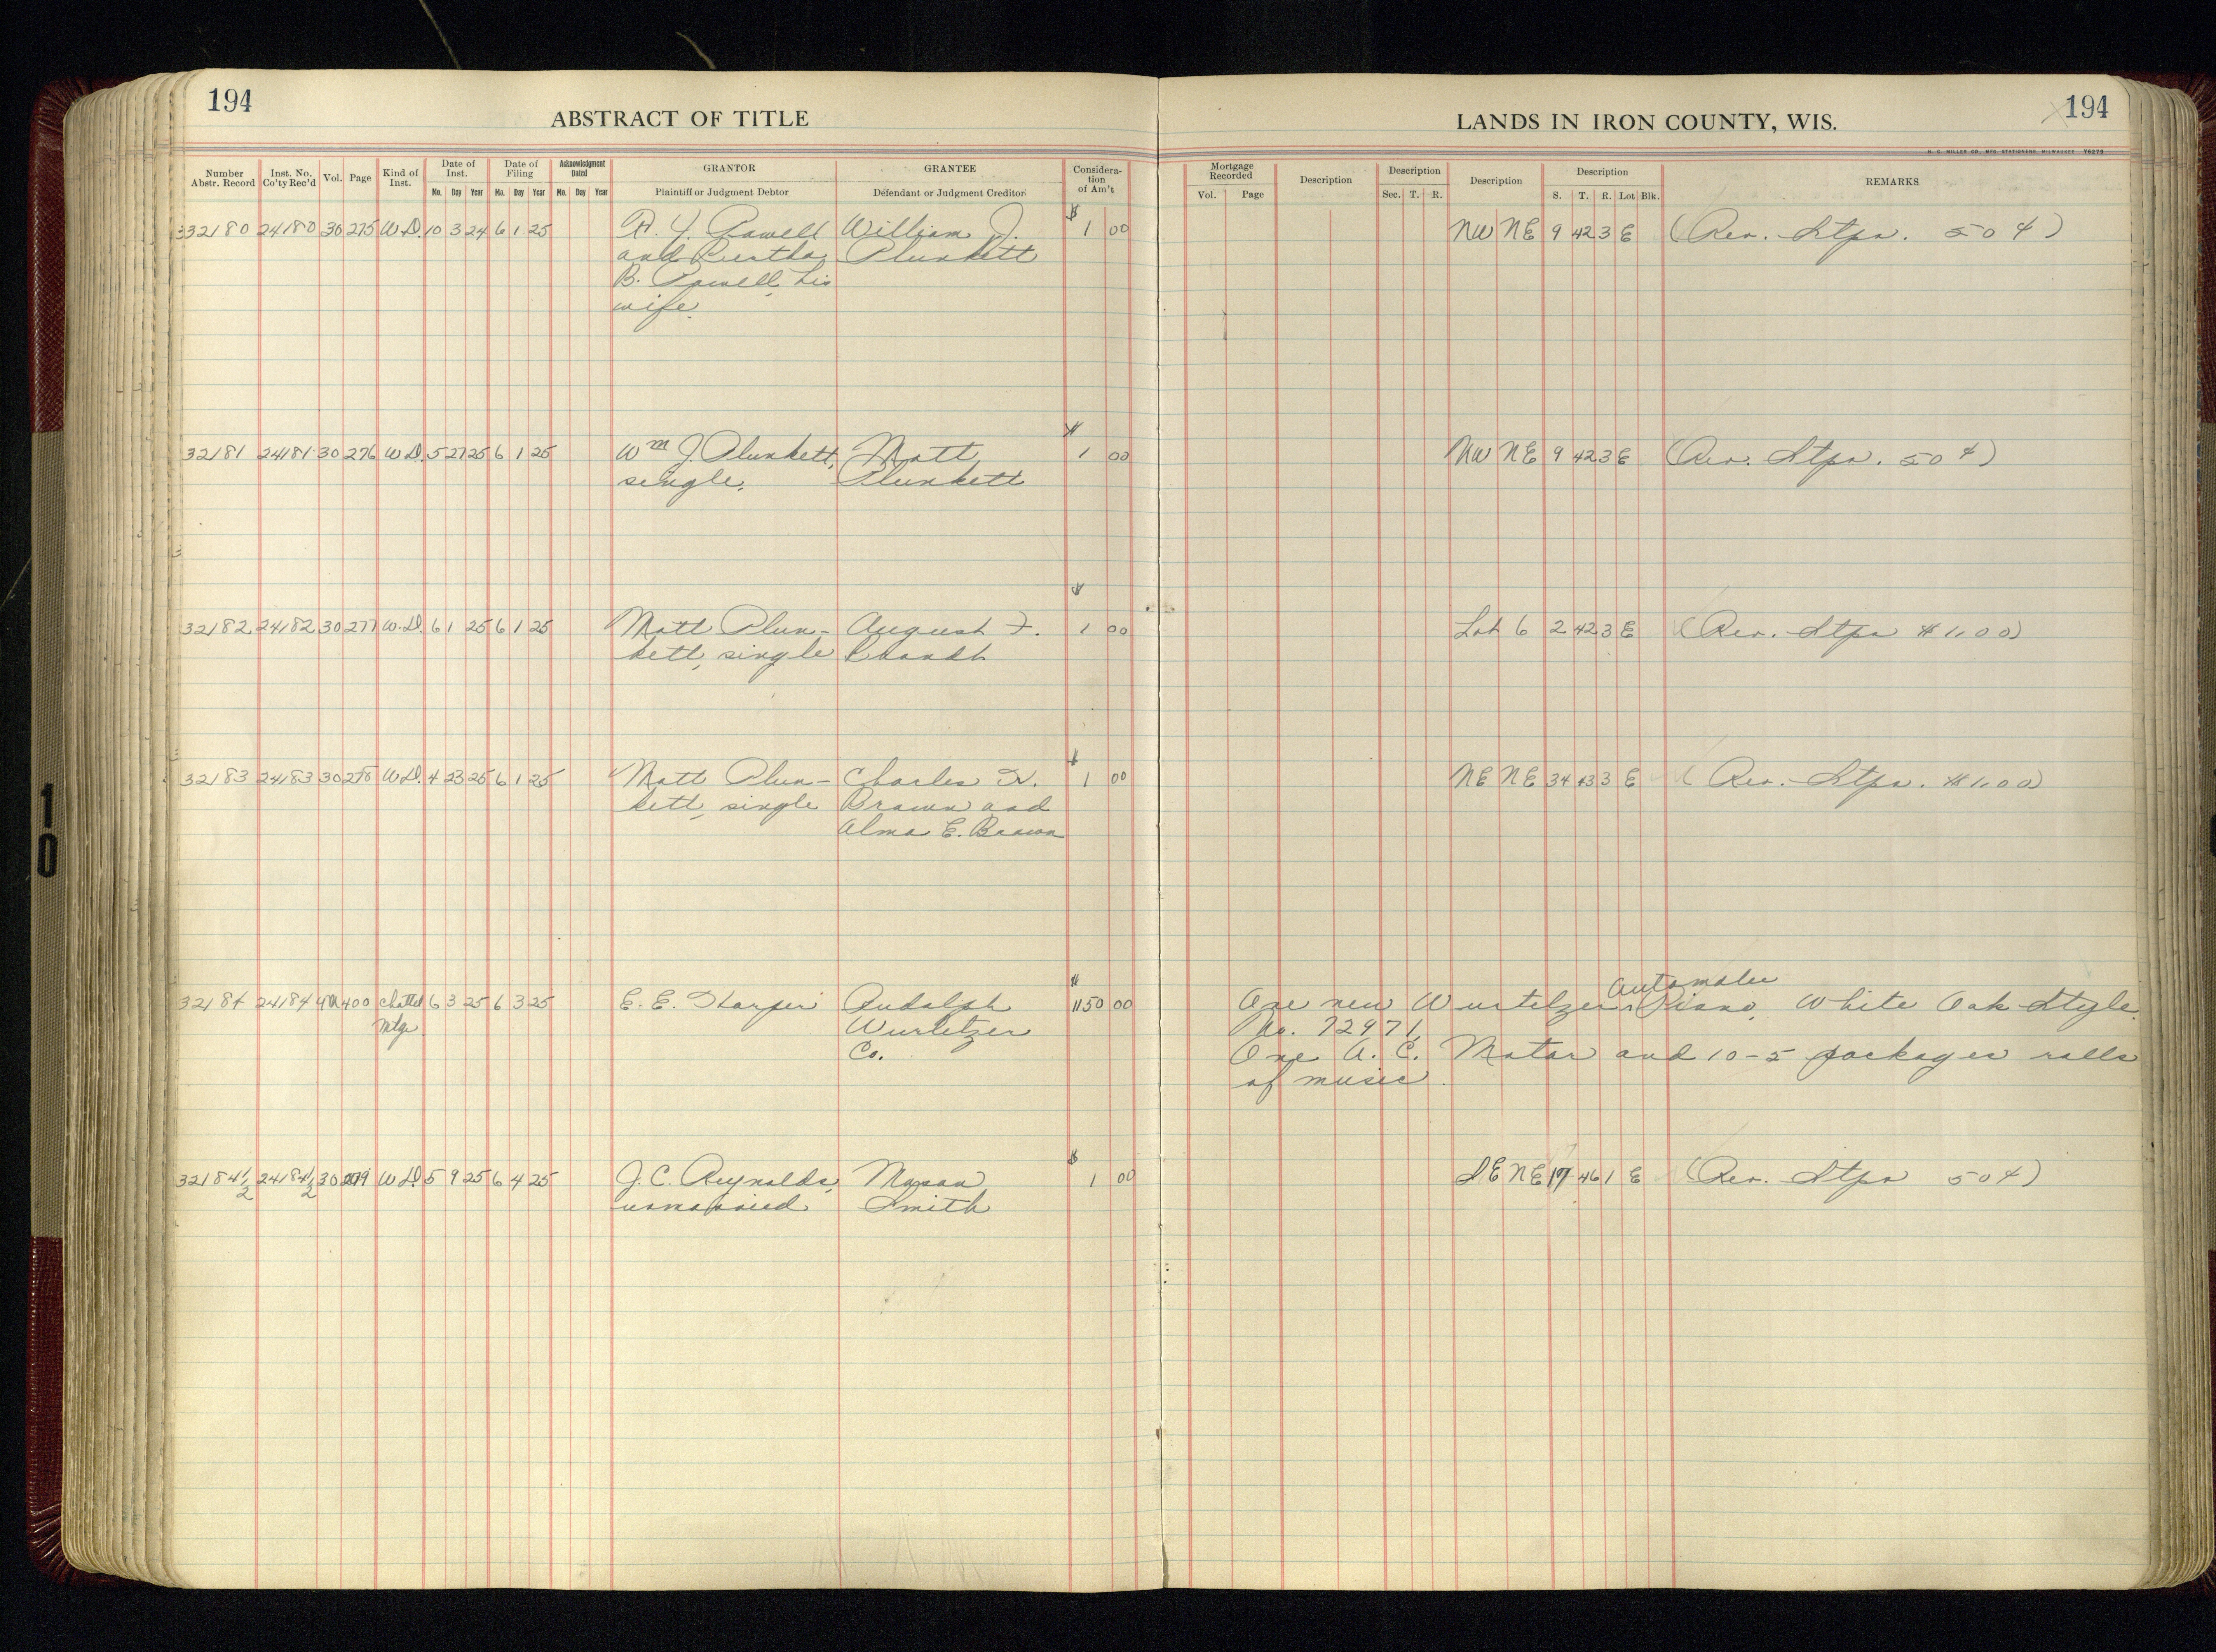 194
ABSTRACT OF TITLE
LANDS IN IRON COUNTY, WIS.
194
H. C. MILLER CO. MFG. STATIONERS, MILWAUKEE 76275
Number Abstr. Record | Inst. No. Co'ty Rec'd | Vol. | Page | Kind of Inst. | Date of Inst. Mo. Day Year | Date of Filing Mo. Day Year | Acknowledgment Dated Mo. Day Year | GRANTOR Plaintiff or Judgment Debtor | GRANTEE Defendant or Judgment Creditor | Considera-tion of Am't | Mortgage Recorded Vol. Page | Description | Description Sec. T. R. | Description | Description S. T. R. Lot Blk. | REMARKS
32180 24180 30 275 W.D. 10 3 24 6 1 25 Powell William J. $ 1 00 NW NE 9 42 3 E (Rev. Stps. 50¢)
and Bertha Plunkett
B. Powell his
wife.
32181 24181 30 276 W.D. 5 27 25 6 1 25 Wm J. Plunkett, Matt $ 1 00 NW NE 9 42 3 E (Rev. Stps. 50¢)
single. Plunkett
32182 24182 30 277 W.D. 6 1 25 6 1 25 Matt Plun- August F. $ 1 00 Lot 6 2 42 3 E (Rev. Stps $1.00)
kett, single
32183 24183 30 278 W.D. 4 23 25 6 1 25 Matt Plun- Charles $ 1 00 NE NE 34 43 3 E (Rev. Stps. $1.00)
kett, single Brown and
Alma E. Brown
32184 24184 400 Chattel 6 3 25 6 3 25 E. E. Rudolph $ 1150 00 One new Wurtelzer Automatic Piano, White Oak Style
Mtge Wurlitzer No. 72971,
Co. One A. C. Motor and 10-5 packages rolls
of music.
32184 1/2 24184 1/2 30 279 W.D. 5 9 25 6 4 25 J. C. Reynolds, Mason $ 1 00 SE NE 17 46 1 E (Rev. Stps 50¢)
unmarried Smith
10